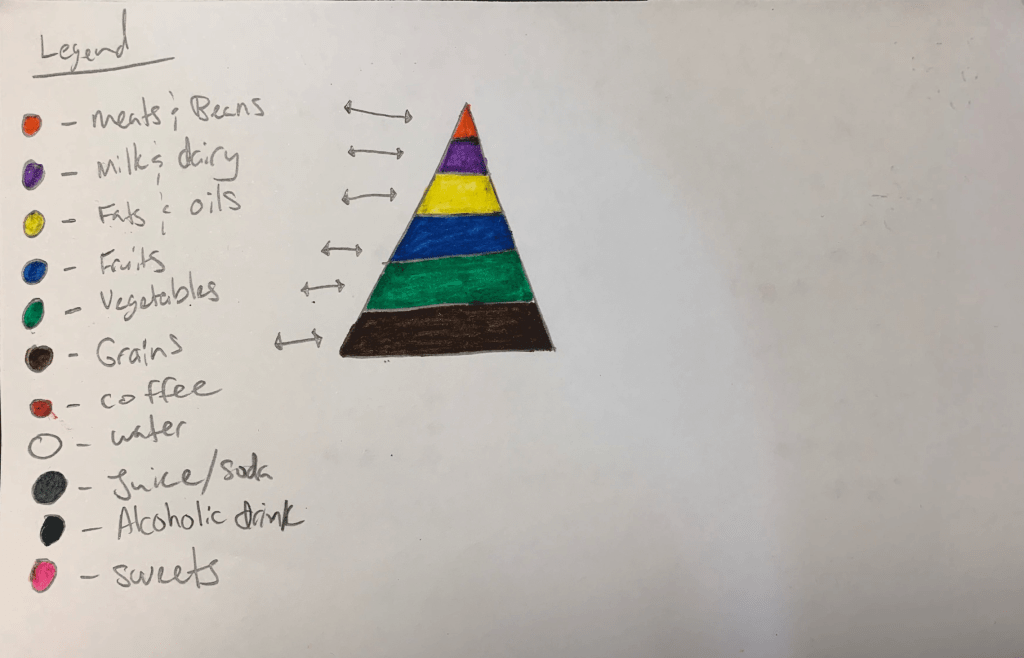 Legend
- meats & Beans
- Milk & dairy
- Fats & oils
- Fruits
- Vegetables
- Grains
- coffee
- water
- Juice/soda
- Alcoholic drink
- sweets